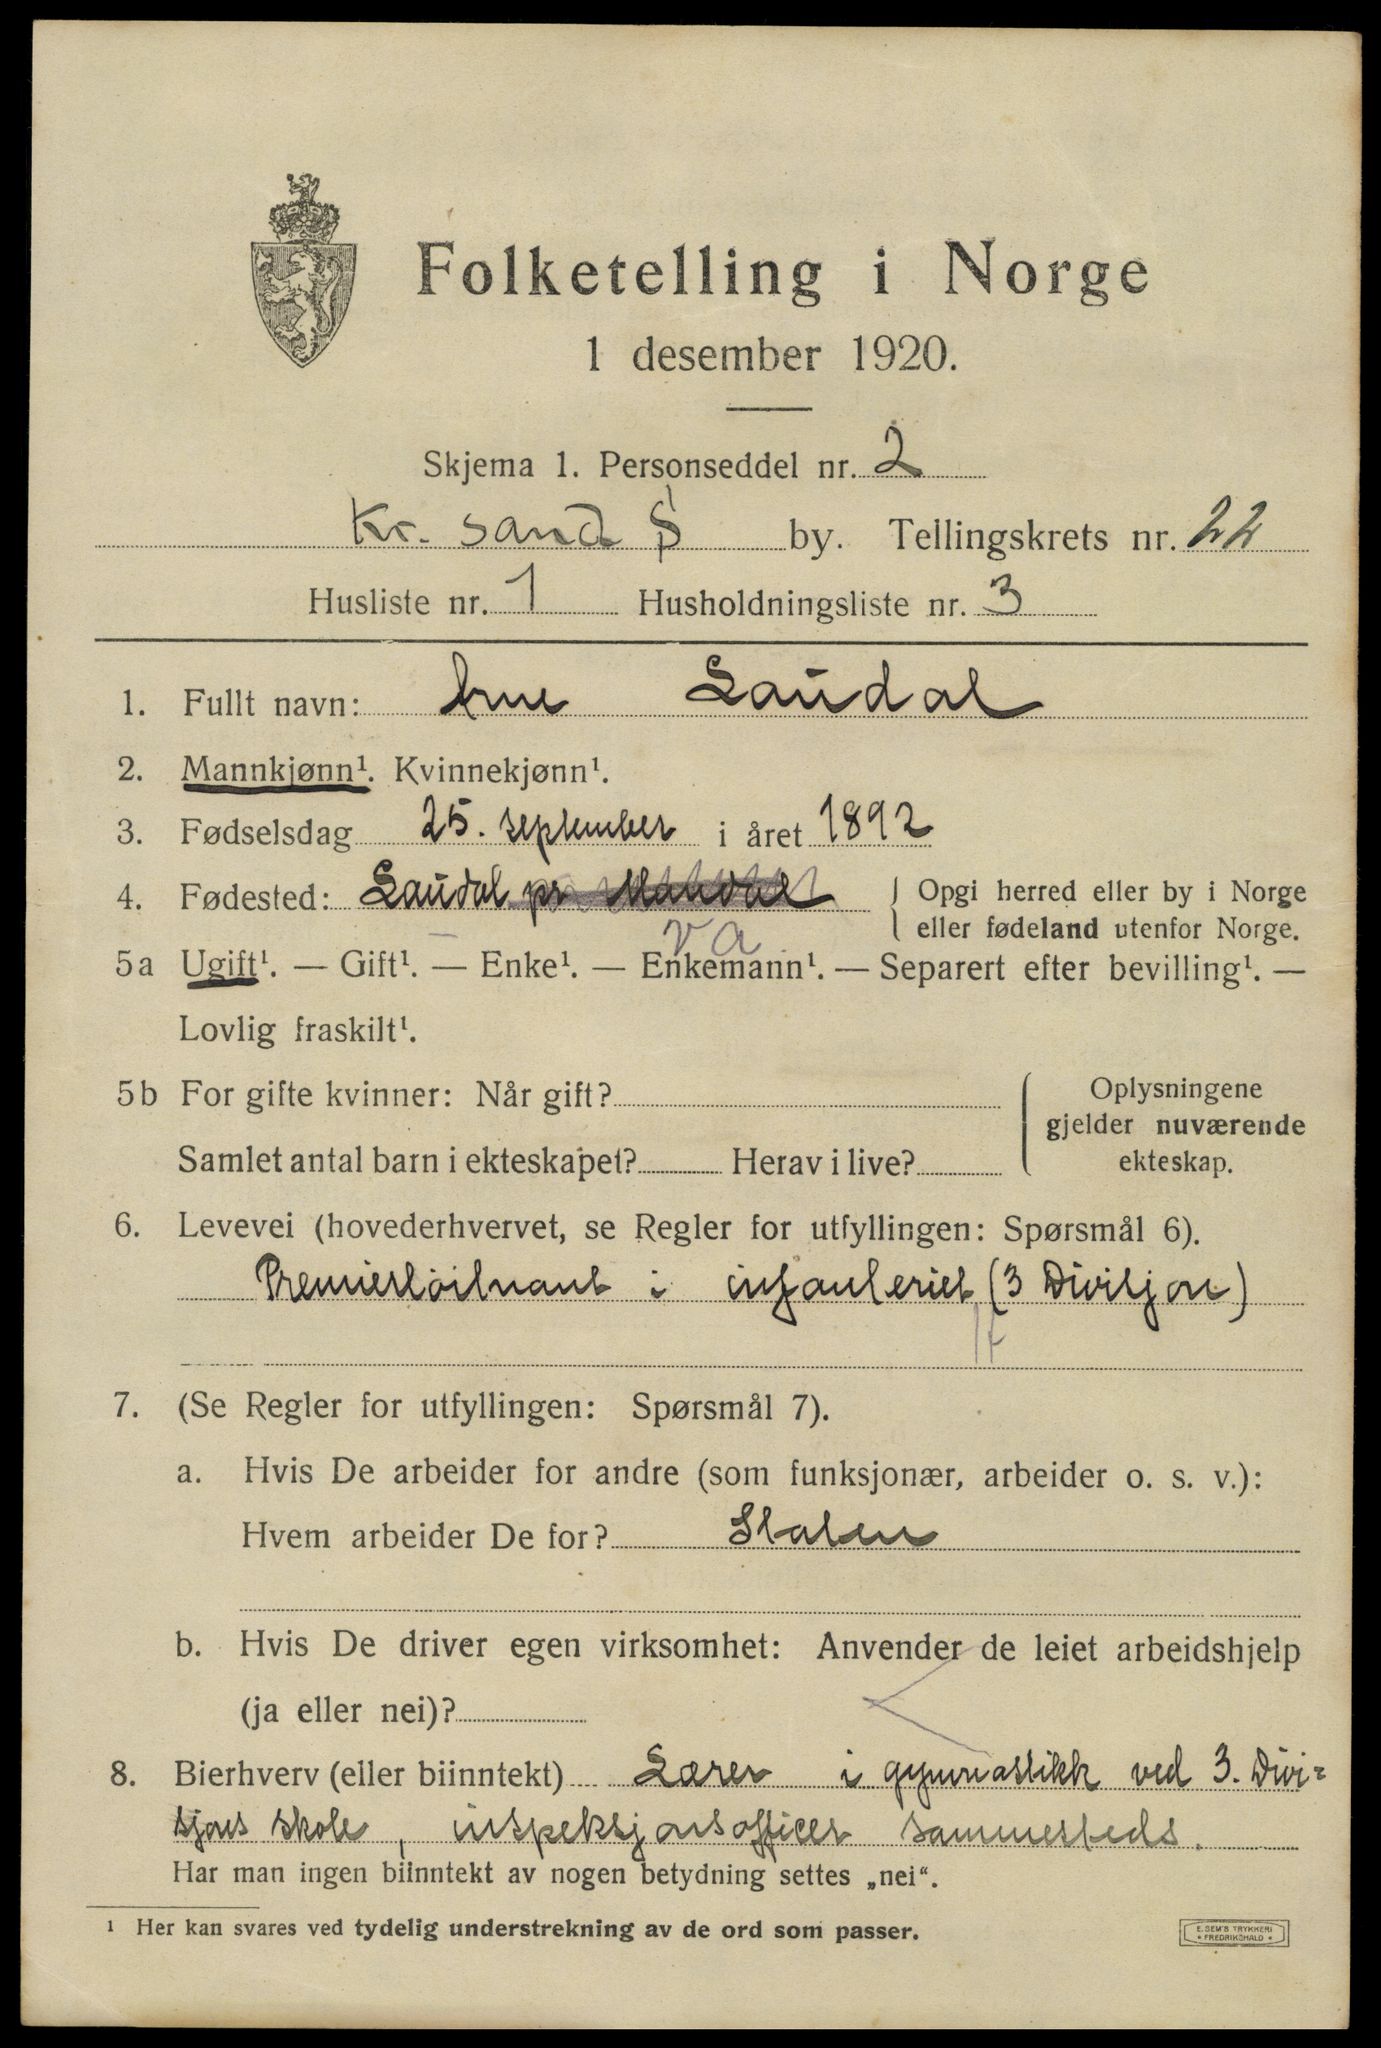 Folketelling i Norge
1 desember 1920.
Skjema 1. Personseddel nr. 2
Kr. sand S by. Tellingskrets nr. 22
Husliste nr. 1 Husholdningsliste nr. 3
1. Fullt navn: Arne Laudal
2. Mannkjønn¹. Kvinnekjønn¹.
3. Fødselsdag 25. september i året 1892
4. Fødested: Laudal pr Mandal { Opgi herred eller by i Norge
eller fødeland utenfor Norge.
va
5a Ugift¹. — Gift¹. — Enke¹. — Enkemann¹. — Separert efter bevilling¹. —
Lovlig fraskilt¹.
5b For gifte kvinner: Når gift?
Samlet antal barn i ekteskapet? Herav i live?
Oplysningene
gjelder nuværende
ekteskap.
6. Levevei (hovederhvervet, se Regler for utfyllingen: Spørsmål 6).
Premierløitnant i infanteriet (3 Divisjon)
7. (Se Regler for utfyllingen: Spørsmål 7).
a. Hvis De arbeider for andre (som funksjonær, arbeider o. s. v.):
Hvem arbeider De for? Staten
b. Hvis De driver egen virksomhet: Anvender de leiet arbeidshjelp
(ja eller nei)?
8. Bierhverv (eller biinntekt) Lærer i gymnastikk ved 3. Divi=
sjons skole, inspeksjonsofficer sammesteds.
Har man ingen biinntekt av nogen betydning settes „nei“.
¹ Her kan svares ved tydelig understrekning av de ord som passer.
E. SEM'S TRYKKERI
FREDRIKSHALD